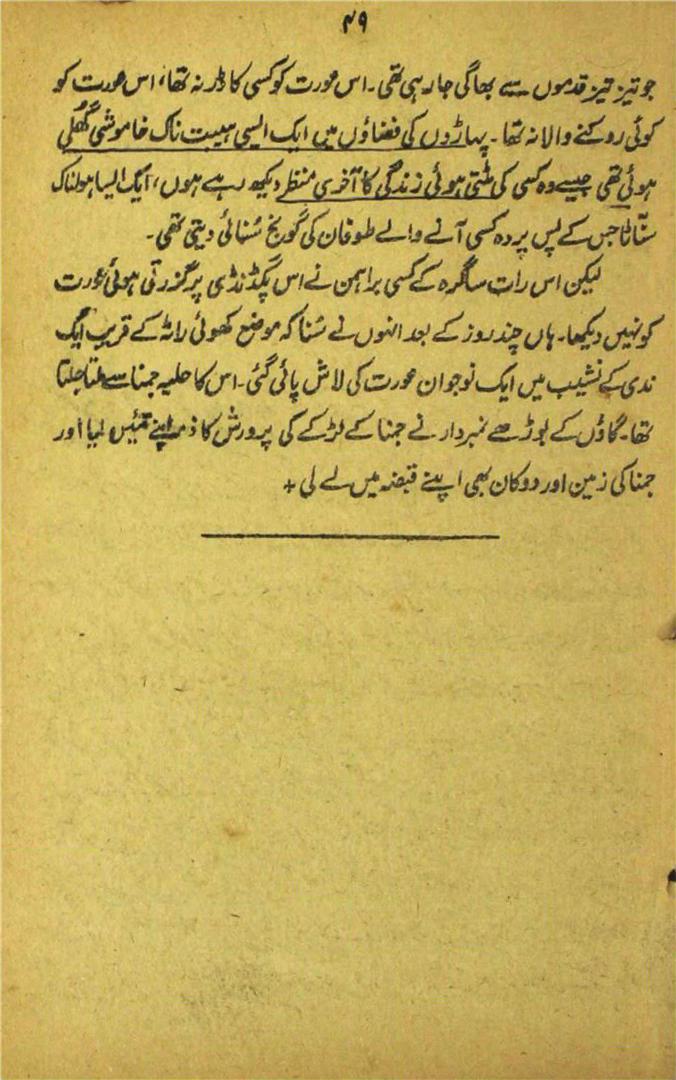 ۴۹
جو تیز تیز قدموں سے بھاگی جا رہی تھی۔ اس عورت کو کسی کا ڈر نہ تھا، اس عورت کو
کوئی روکنے والا نہ تھا۔ پہاڑوں کی فضاؤں میں ایک ایسی ہیبت ناک خاموشی گھلی
ہوئی تھی جیسے وہ کسی کی مٹتی ہوئی زندگی کا آخری منظر دیکھ رہے ہوں، ایک ایسا ہولناک
سنّاٹا جس کے پس پردہ کسی آنے والے طوفان کی گونج سُنائی دیتی تھی۔
لیکن اس رات ساگرہ کے کسی براہمن نے اس پگڈنڈی پر گزرتی ہوئی عورت
کو نہیں دیکھا۔ ہاں چند روز کے بعد انہوں نے سُنا کہ موضع کھوئی راٹہ کے قریب ایک
ندی کے نشیب میں ایک نوجوان عورت کی لاش پائی گئی۔ اس کا حلیہ جمنا سے ملتا جلتا
تھا۔ گاؤں کے بوڑھے نمبردار نے جمنا کے لڑکے کی پرورش کا ذمہ اپنے تئیں لیا اور
جمنا کی زمین اور دوکان بھی اپنے قبضہ میں لے لی +